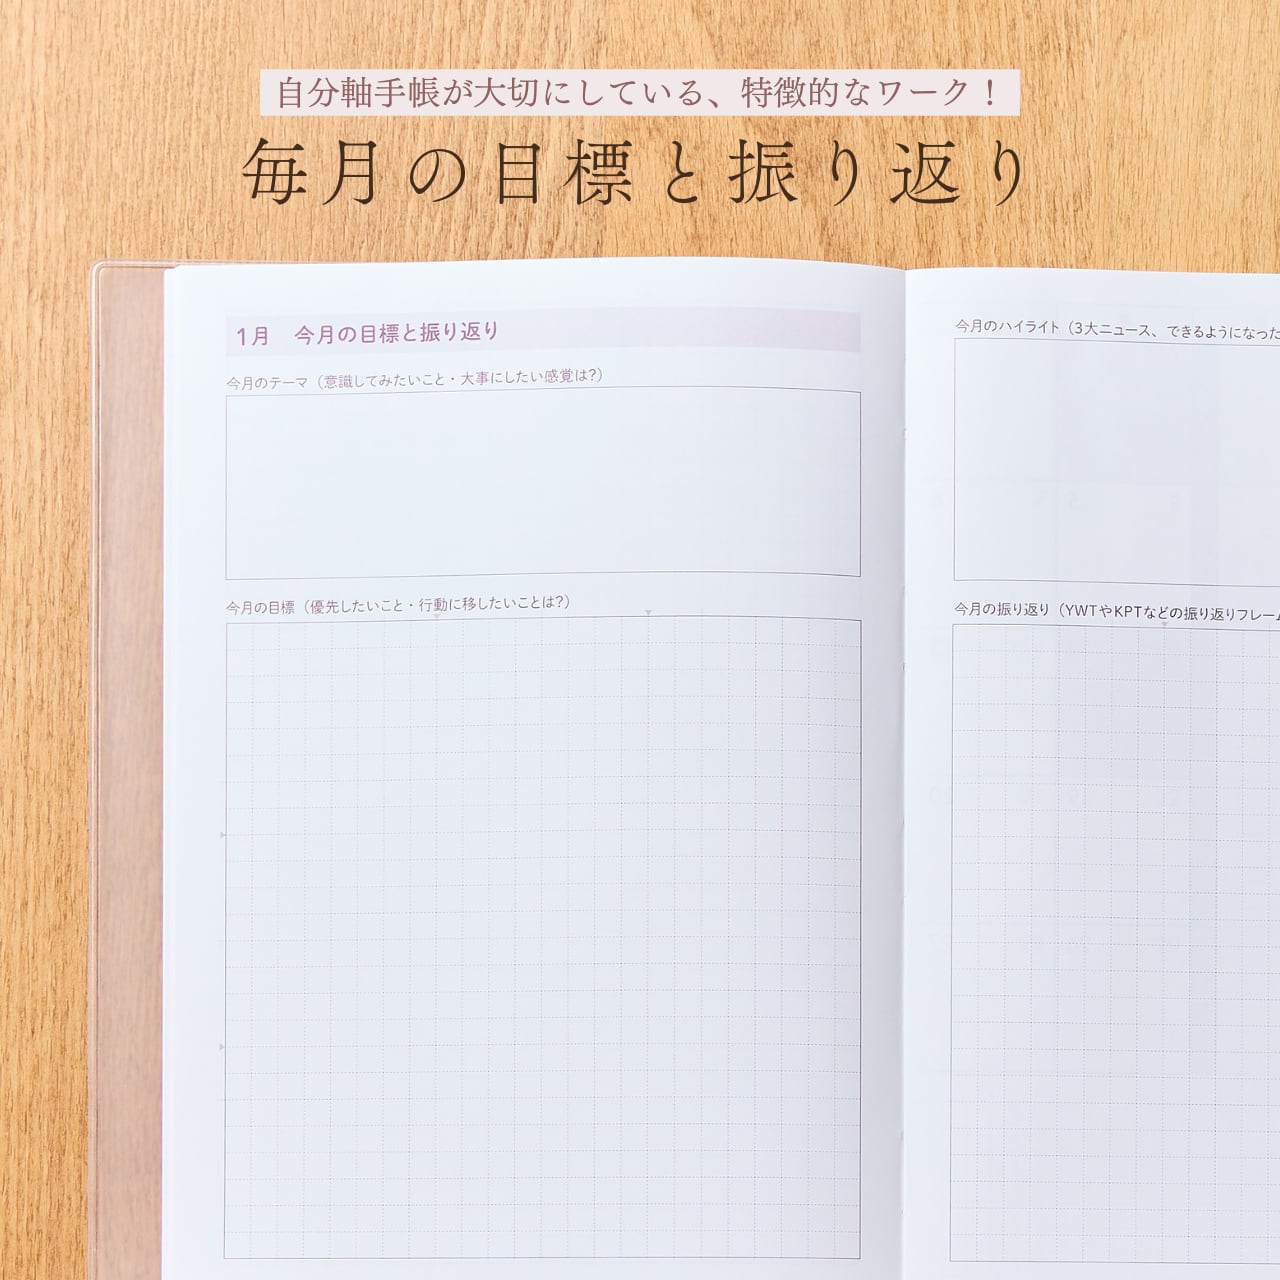 自分軸手帳が大切にしている、特徴的なワーク！
毎月の目標と振り返り
1月　今月の目標と振り返り
今月のテーマ（意識してみたいこと・大事にしたい感覚は?）
今月の目標（優先したいこと・行動に移したいことは?）
今月のハイライト（3大ニュース、できるようになった
今月の振り返り（YWTやKPTなどの振り返りフレーム